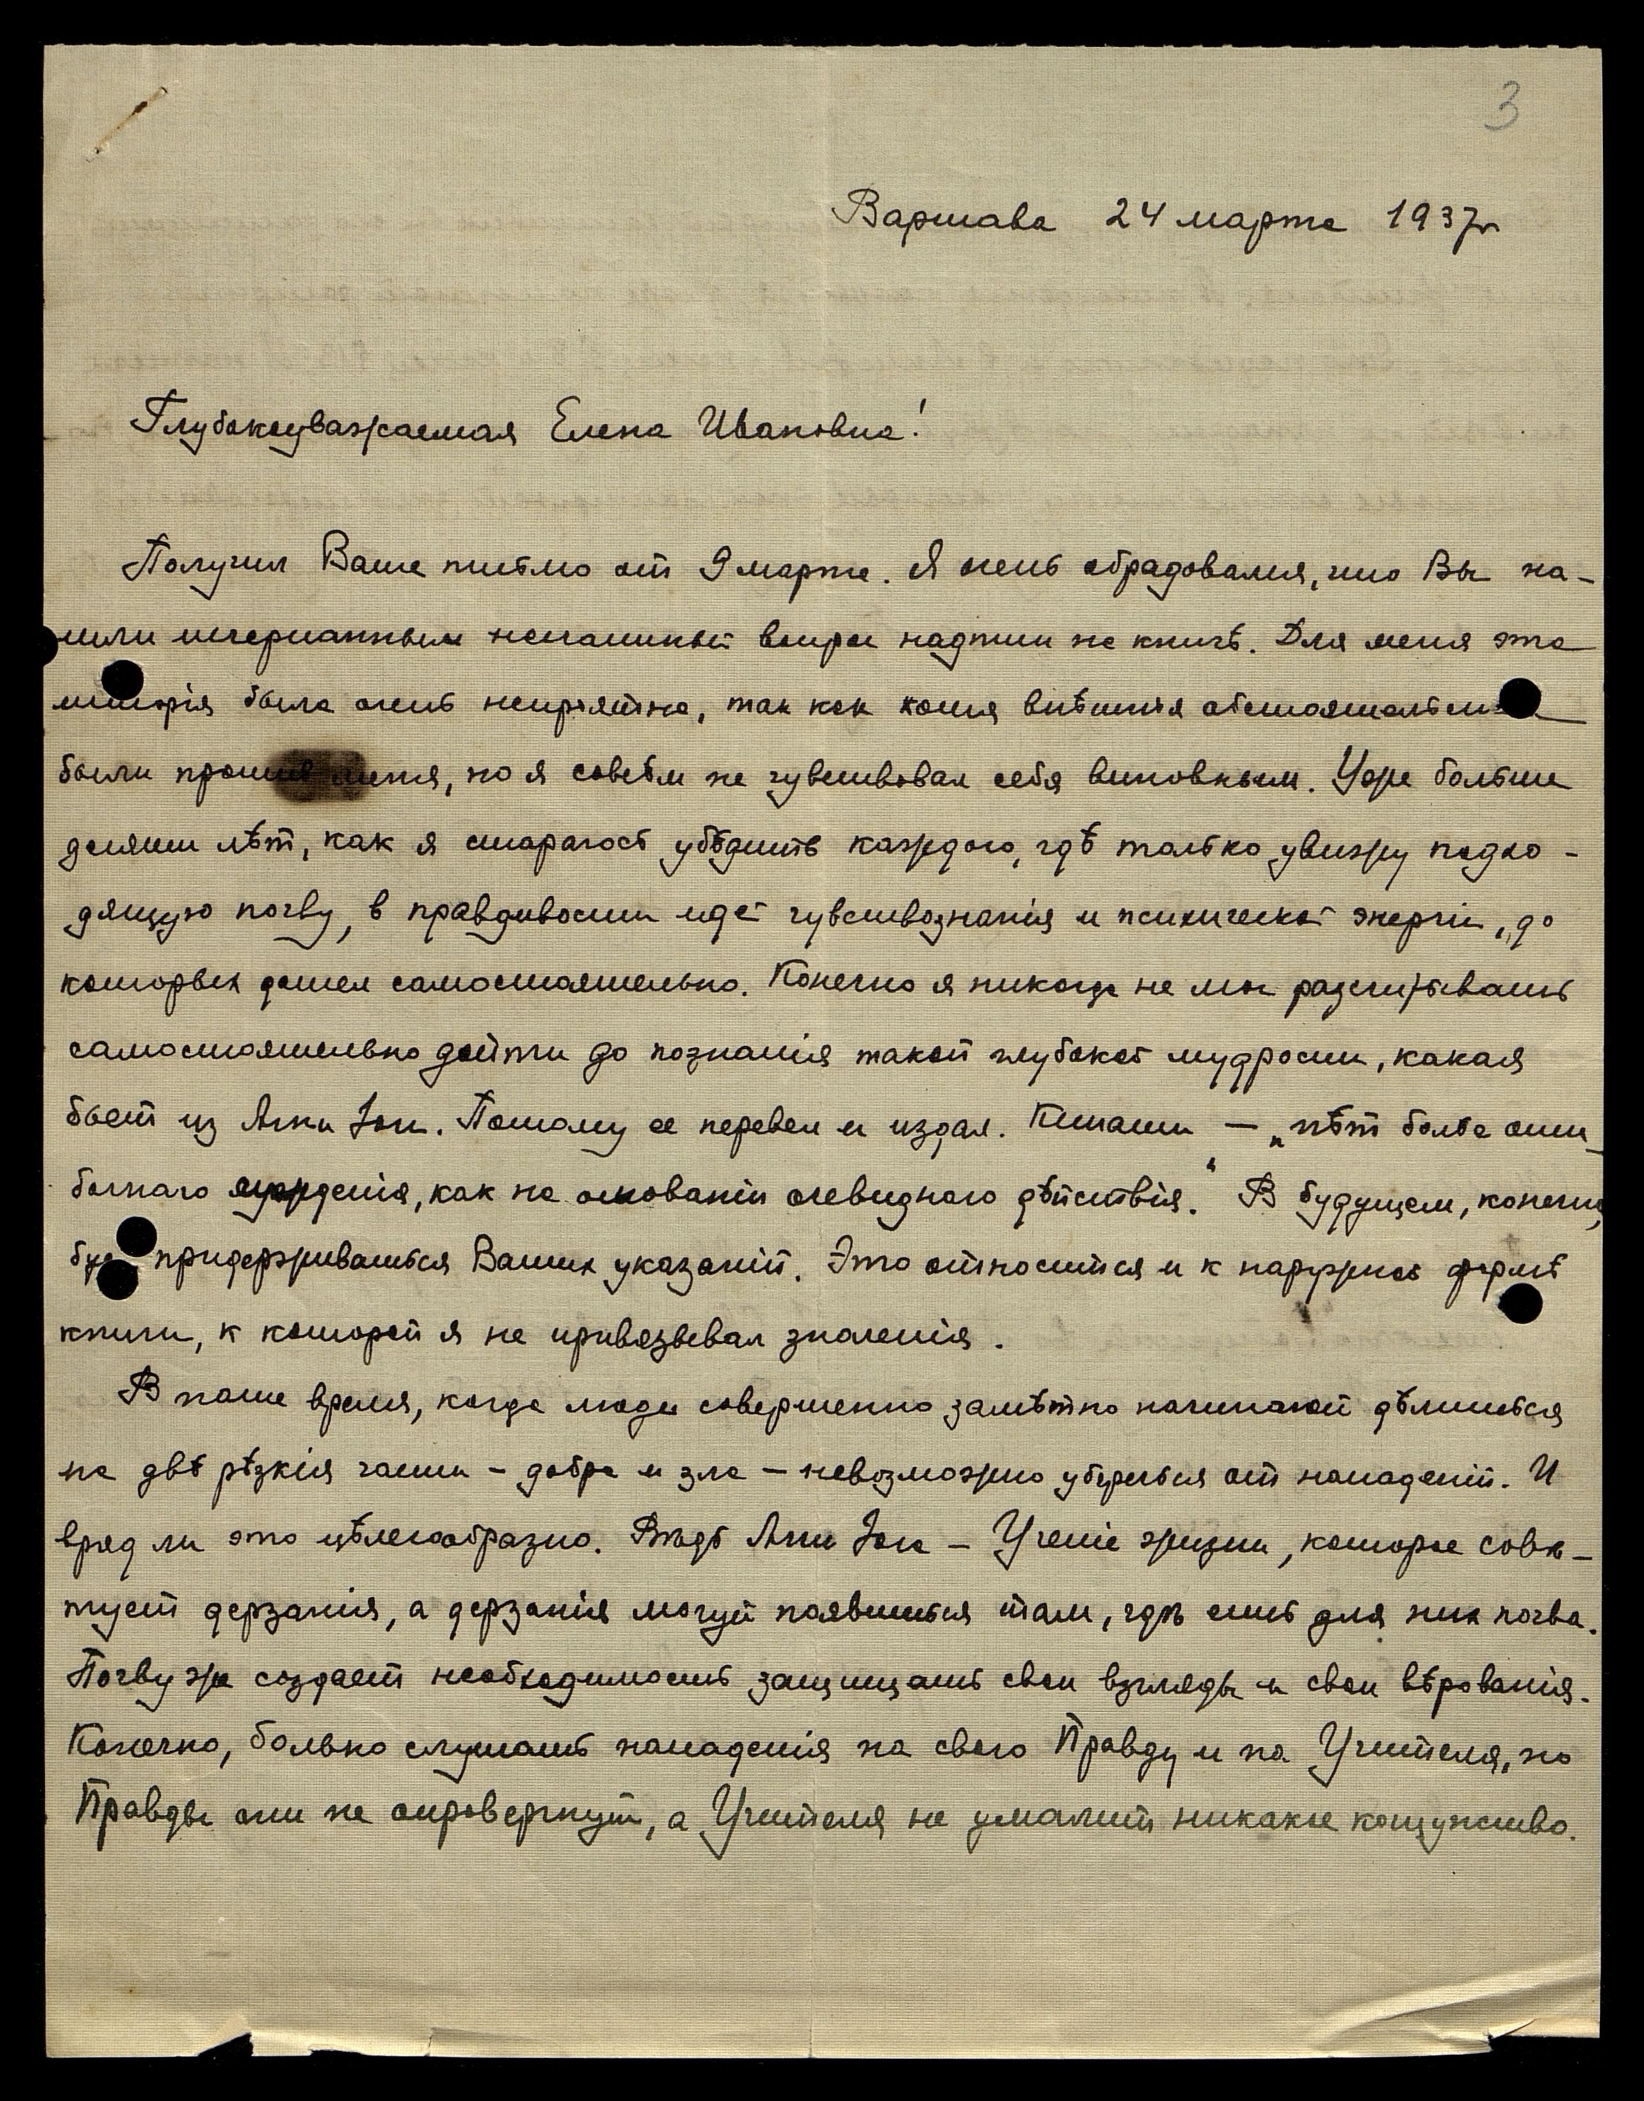 3
Варшава 24 марта 1937 г
Глубокоуважаемая Елена Ивановна!
Получил Ваше письмо от 9 марта. Я очень обрадовался, что Вы на-
шли исчерпанным несчастный вопрос надписи на книгѣ. Для меня эта
исторія была очень непріятна, так как внѣшнія обстоятельства
были против меня, но я совсѣм не чувствовал себя виновным. Уже больше
десяти лѣт, как я стараюсь убѣдить каждого, гдѣ только увижу подхо-
дящую почву, в правдивости идей чувствознанія и психической энергіи, до
которых дошел самостоятельно. Конечно я никогда не мог разсчитывать
самостоятельно дойти до познанія такой глубокой мудрости, какая
бьет из Агни Іоги. Потому ее перевел и издал. Кстати — „нѣт болѣе оши-
бочнаго сужденія, как на основаніи очевиднаго дѣйствія." В будущем, конечно,
буду придерживаться Ваших указаній. Это относится и к наружной формѣ
книги, к которой я не привязывал значенія.
В наше время, когда люди совершенно замѣтно начинают дѣлиться
на двѣ рѣзкія части – добра и зла – невозможно уберечься от нападеній. И
вряд ли это цѣлесообразно. Вѣдь Агни Іога – Ученіе жизни, которое совѣ-
тует дерзанія, а дерзанія могут появиться там, гдѣ есть для них почва.
Почву же создает необходимость защищать свои взгляды и свои вѣрованія.
Конечно, больно слушать нападенія на свою Правду и на Учителя, но
Правды они не опровергнут, а Учителя не умалит никакое кощунство.